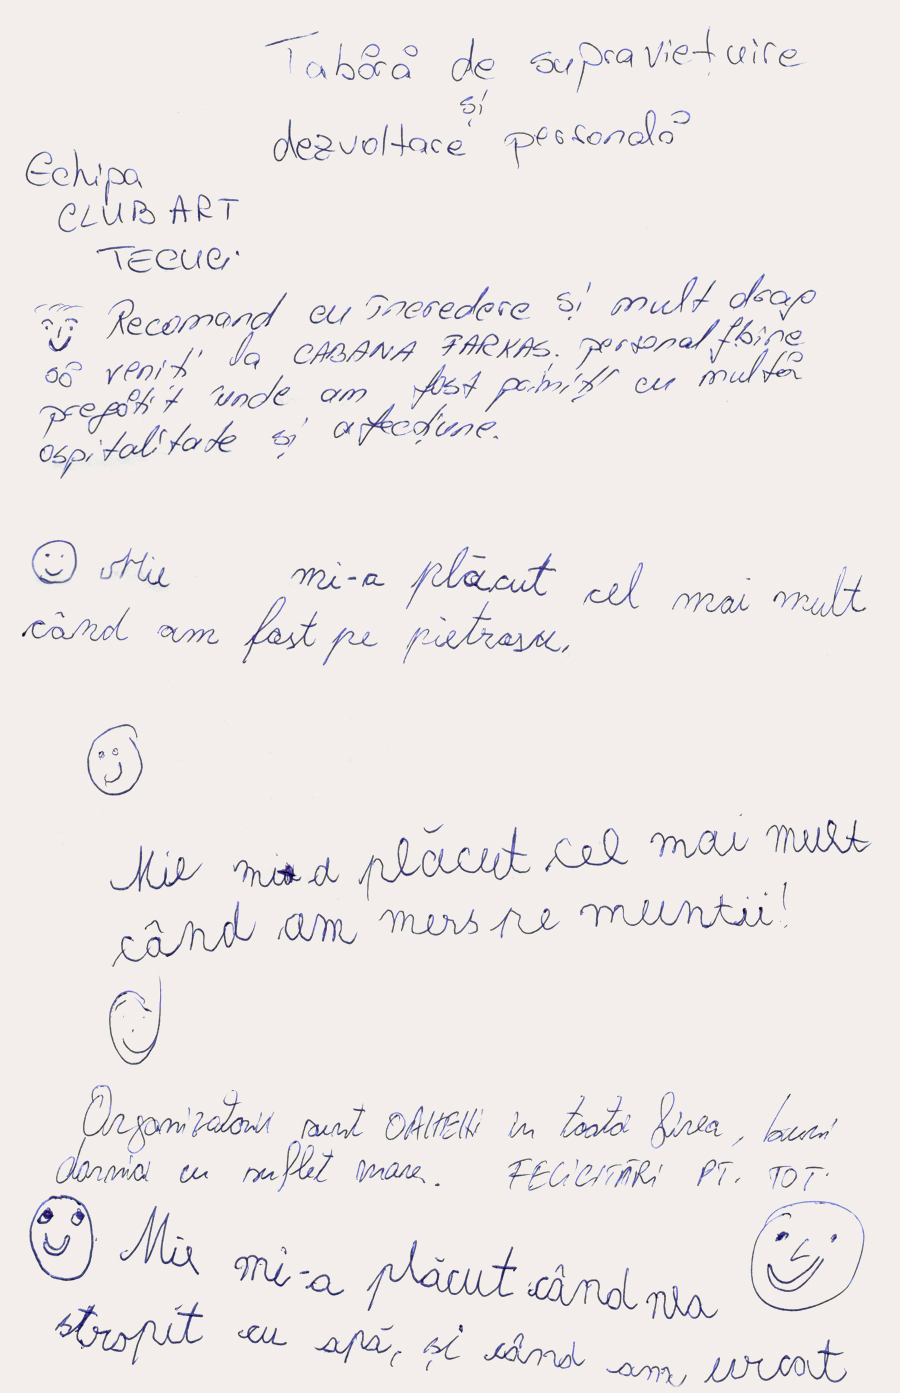 Tabără de supraviețuire
și
dezvoltare personală
Echipa
CLUB ART
TECUCI
Recomand cu încredere și mult drag
să veniți la CABANA FARKAS. personal f bine
pregătit unde am fost primiți cu multă
ospitalitate și afecțiune.
Mie mi-a plăcut cel mai mult
când am fost pe pietrosu.
Mie mi a plăcut cel mai mult
când am mers pe muntii!
Organizatorii sunt OAMENI in toata firea, buni
darnici cu suflet mare. FELICITĂRI PT. TOT.
Mie mi-a plăcut când nea
stropit cu apă, și când am urcat